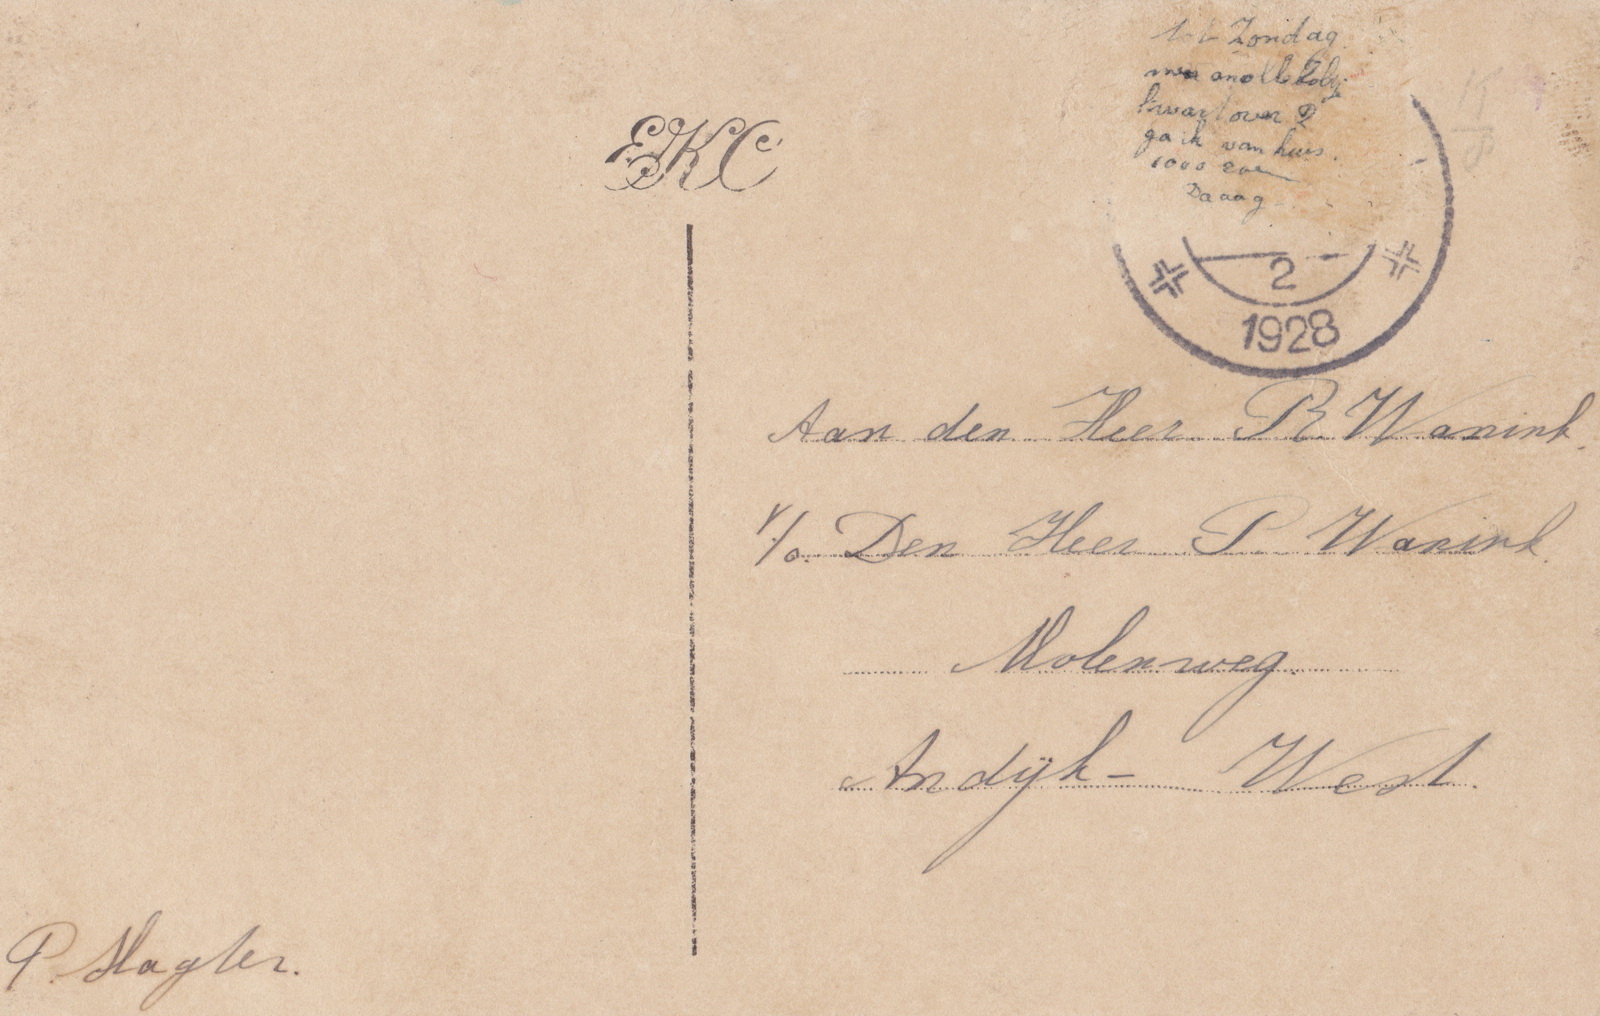 tot Zondag
kwart over 2
ga ik van huis.
1000 zoen
Daaag
EKC
2
1928
Aan den Heer R Wanink.
V/o. Den Heer P Wanink.
Molenweg.
Andijk - West.
P. Slagter.